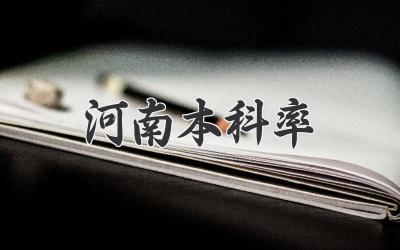 河南本科率